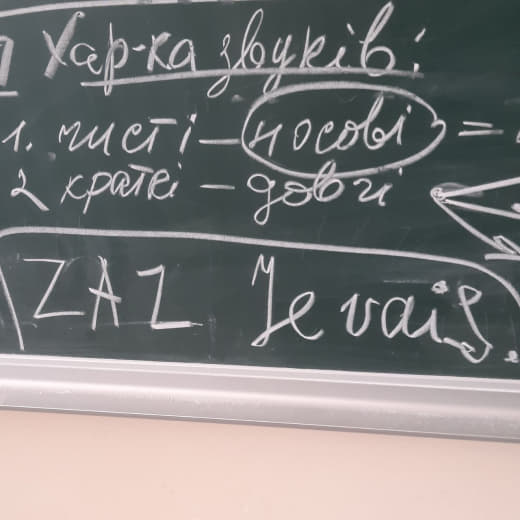 Хар-ка звуків:
1. чисті – носові =
2 краткі – довгі
ZAZ Je vais